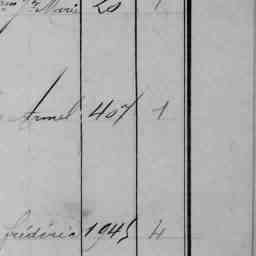 Marie 20 1
Armel 407 1
frédéric 1945 4